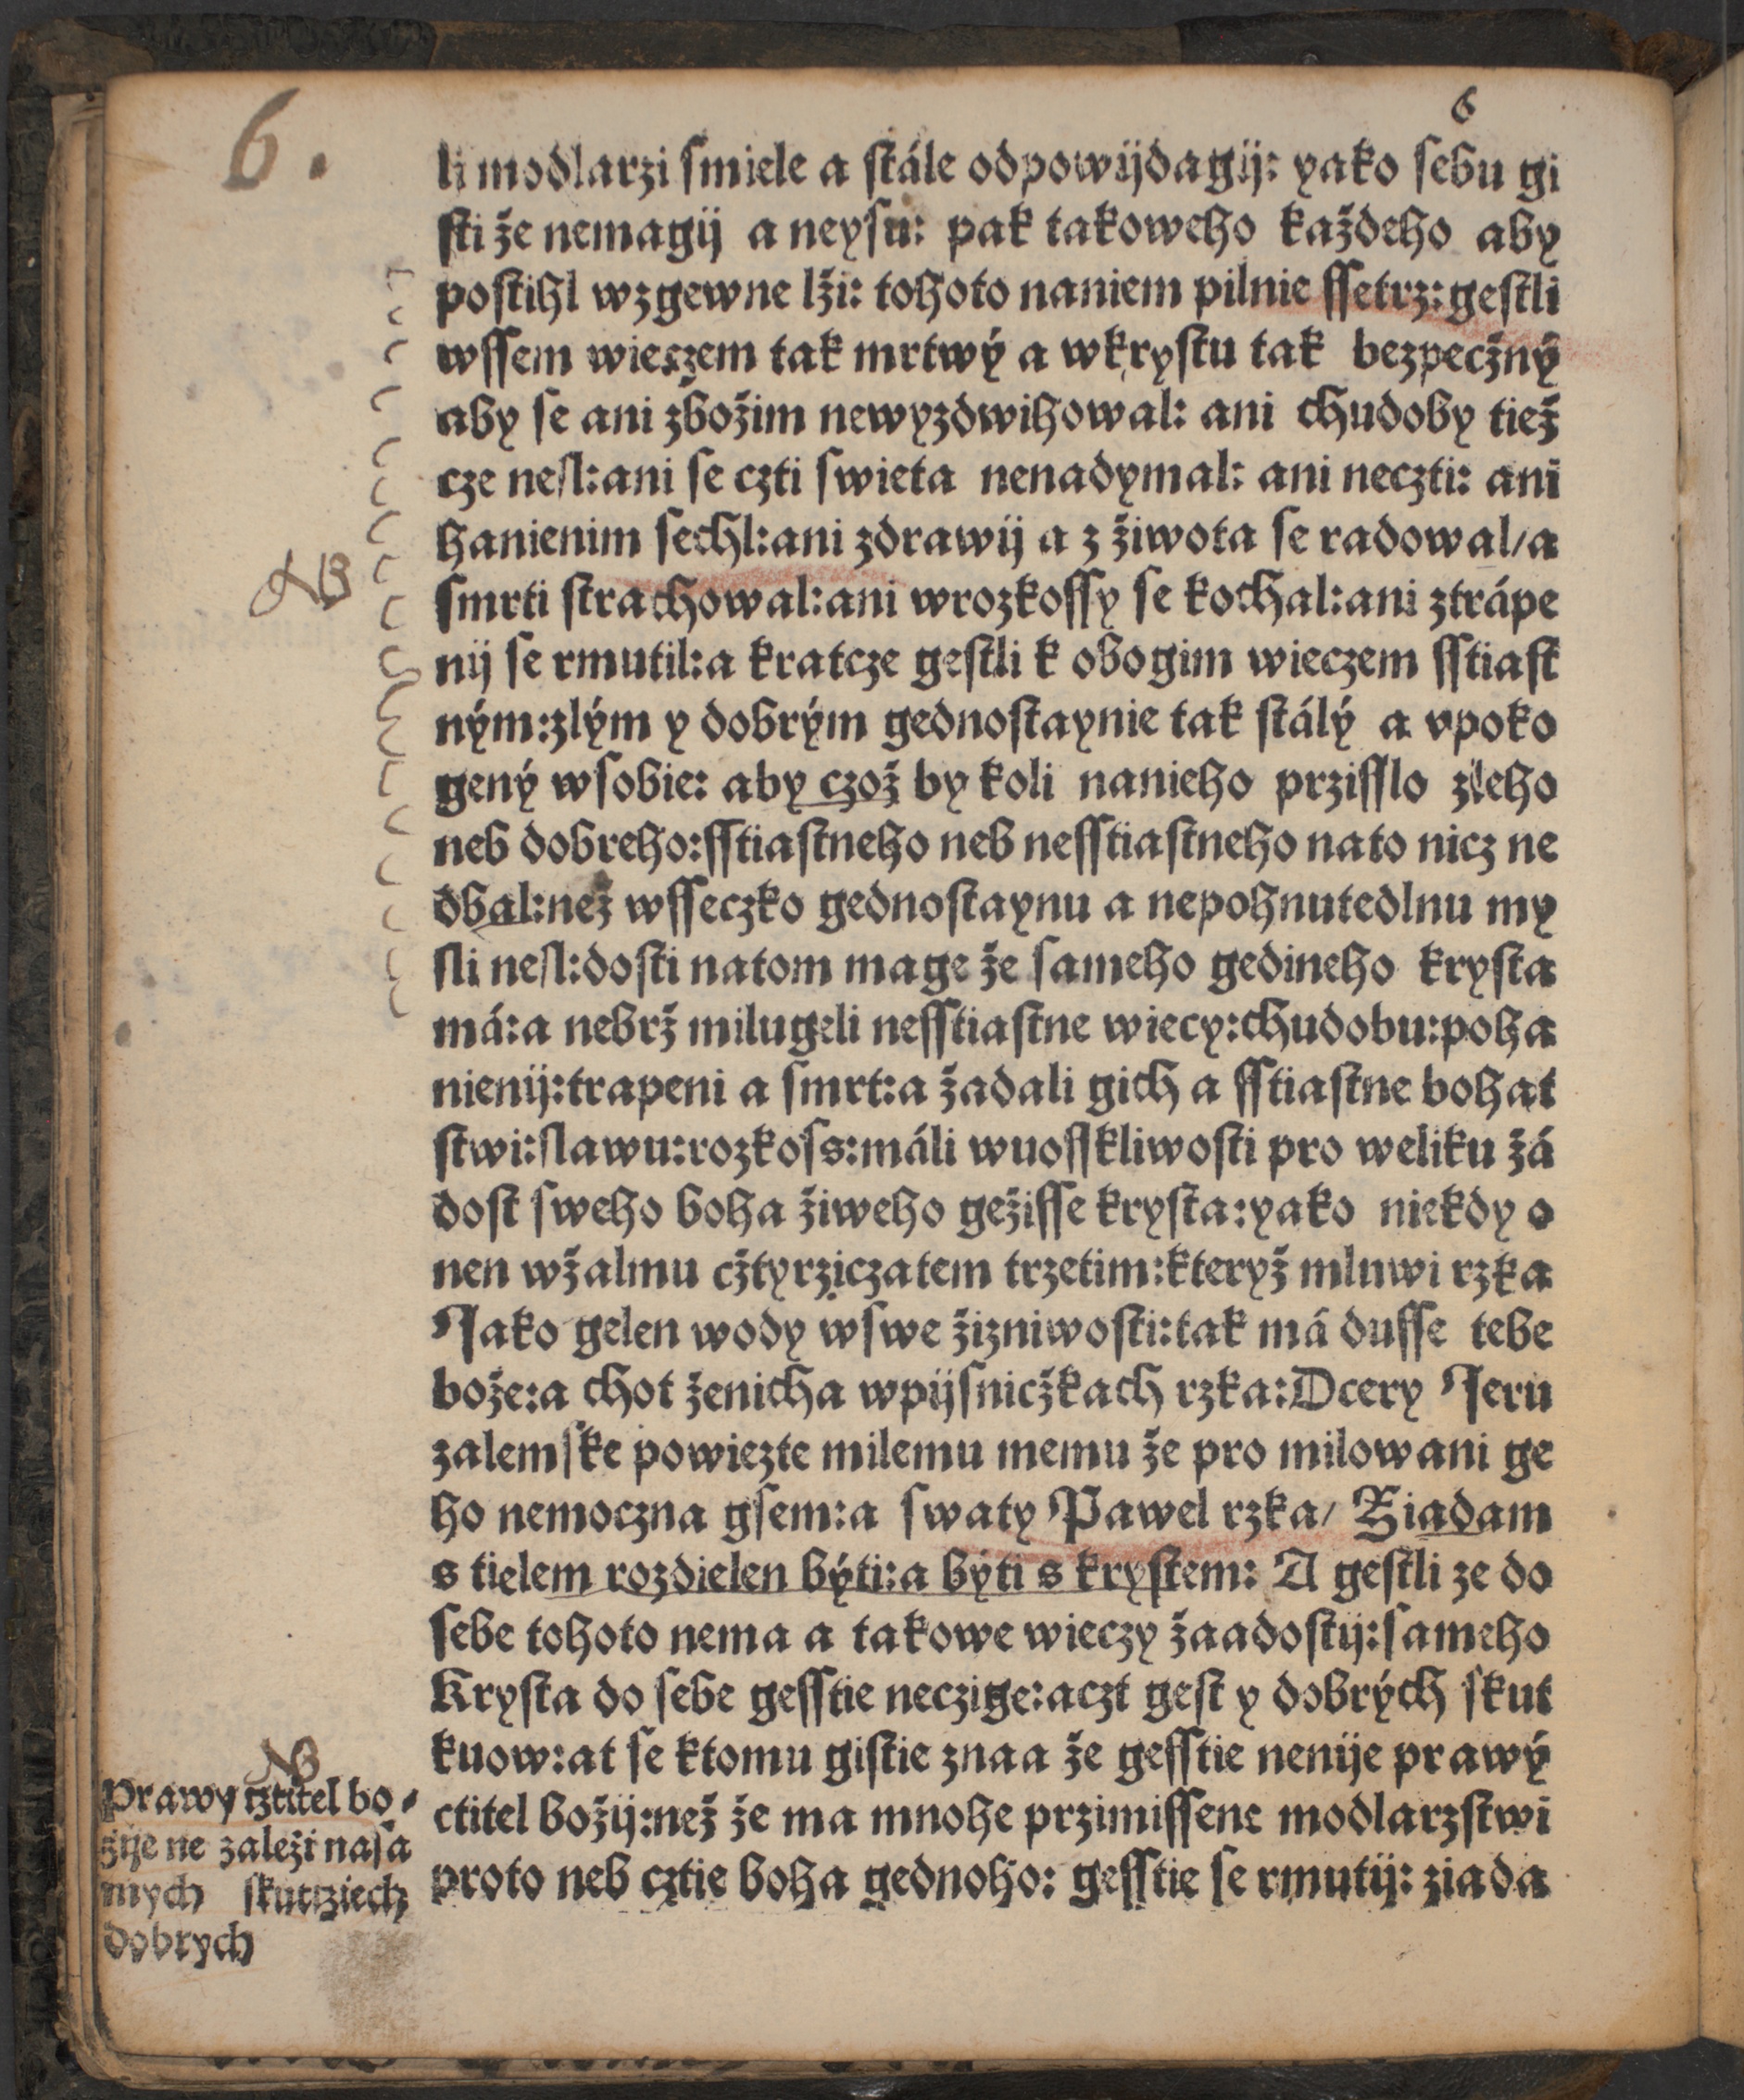 6.
6
li modlarzi ſmiele a ſtále odpowijdagij: yako ſebu gi
ſti že nemagij a neyſu: pak takoweho každeho aby
poſtihl wzgewne lži: tohoto naniem pilnie ſſetrz:geſtli
wſſem wieczem tak mrtwý a wkryſtu tak bezpecžný
aby ſe ani zbožim newyzdwihowal: ani chudoby tiež
cze neſl:ani ſe czti ſwieta nenadymal: ani neczti: ani
hanienim ſechl:ani zdrawij a z žiwota ſe radowal/a
NB
ſmrti ſtrachowal:ani wrozkoſſy ſe kochal:ani ztrápe
nij ſe rmutil:a kratcze geſtli k obogim wieczem ſſtiaſt
ným:zlým y dobrým gednoſtaynie tak ſtálý a vpoko
gený wſobie: aby czož by koli nanieho prziſſlo zleho
neb dobreho:ſſtiaſtneho neb neſſtiaſtneho nato nicz ne
dbal:než wſſeczko gednoſtaynu a nepohnutedlnu my
ſli neſl:doſti natom mage že ſameho gedineho kryſta
má:a nebrž milugeli neſſtiaſtne wiecy:chudobu:poha
nienij:trapeni a ſmrt:a žadali gich a ſſtiaſtne bohat
ſtwi:ſlawu:rozkoſs:máli wuoſſkliwoſti pro weliku žá
doſt ſweho boha žiweho gežiſſe kryſta:yako niekdy o
nen wžalmu cžtyrziczatem trzetim:kteryž mluwi rzka
Jako gelen wody wſwe žizniwoſti:tak má duſſe tebe
bože:a chot ženicha wpijſnicžkach rzka:Dcery Jeru
zalemſke powiezte milemu memu že pro milowani ge
ho nemoczna gſem:a ſwaty Pawel rzka/ Ziadam
s tielem rozdielen býti:a býti s kryſtem: A geſtli ze do
ſebe tohoto nema a takowe wieczy žaadoſtij:ſameho
Kryſta do ſebe geſſtie neczige:aczt geſt y dobrých ſkut
kuow:at ſe ktomu giſtie znaa že geſſtie nenije prawý
ctitel božij:než že ma mnohe przimiſſene modlarzſtwi
proto neb cztie boha gednoho: geſſtie ſe rmutij: ziada
NB
Prawy cztitel bo⸗
žije ne zaleži naſa
mych ſkutcziech
dobrych